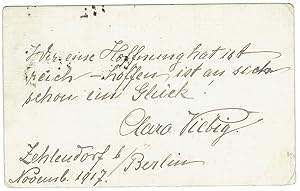 Wer eine Hoffnung hat ist
reich – hoffen ist an sich
schon ein Glück!
Clara Viebig
Zehlendorf b/Berlin
Novemb. 1917.